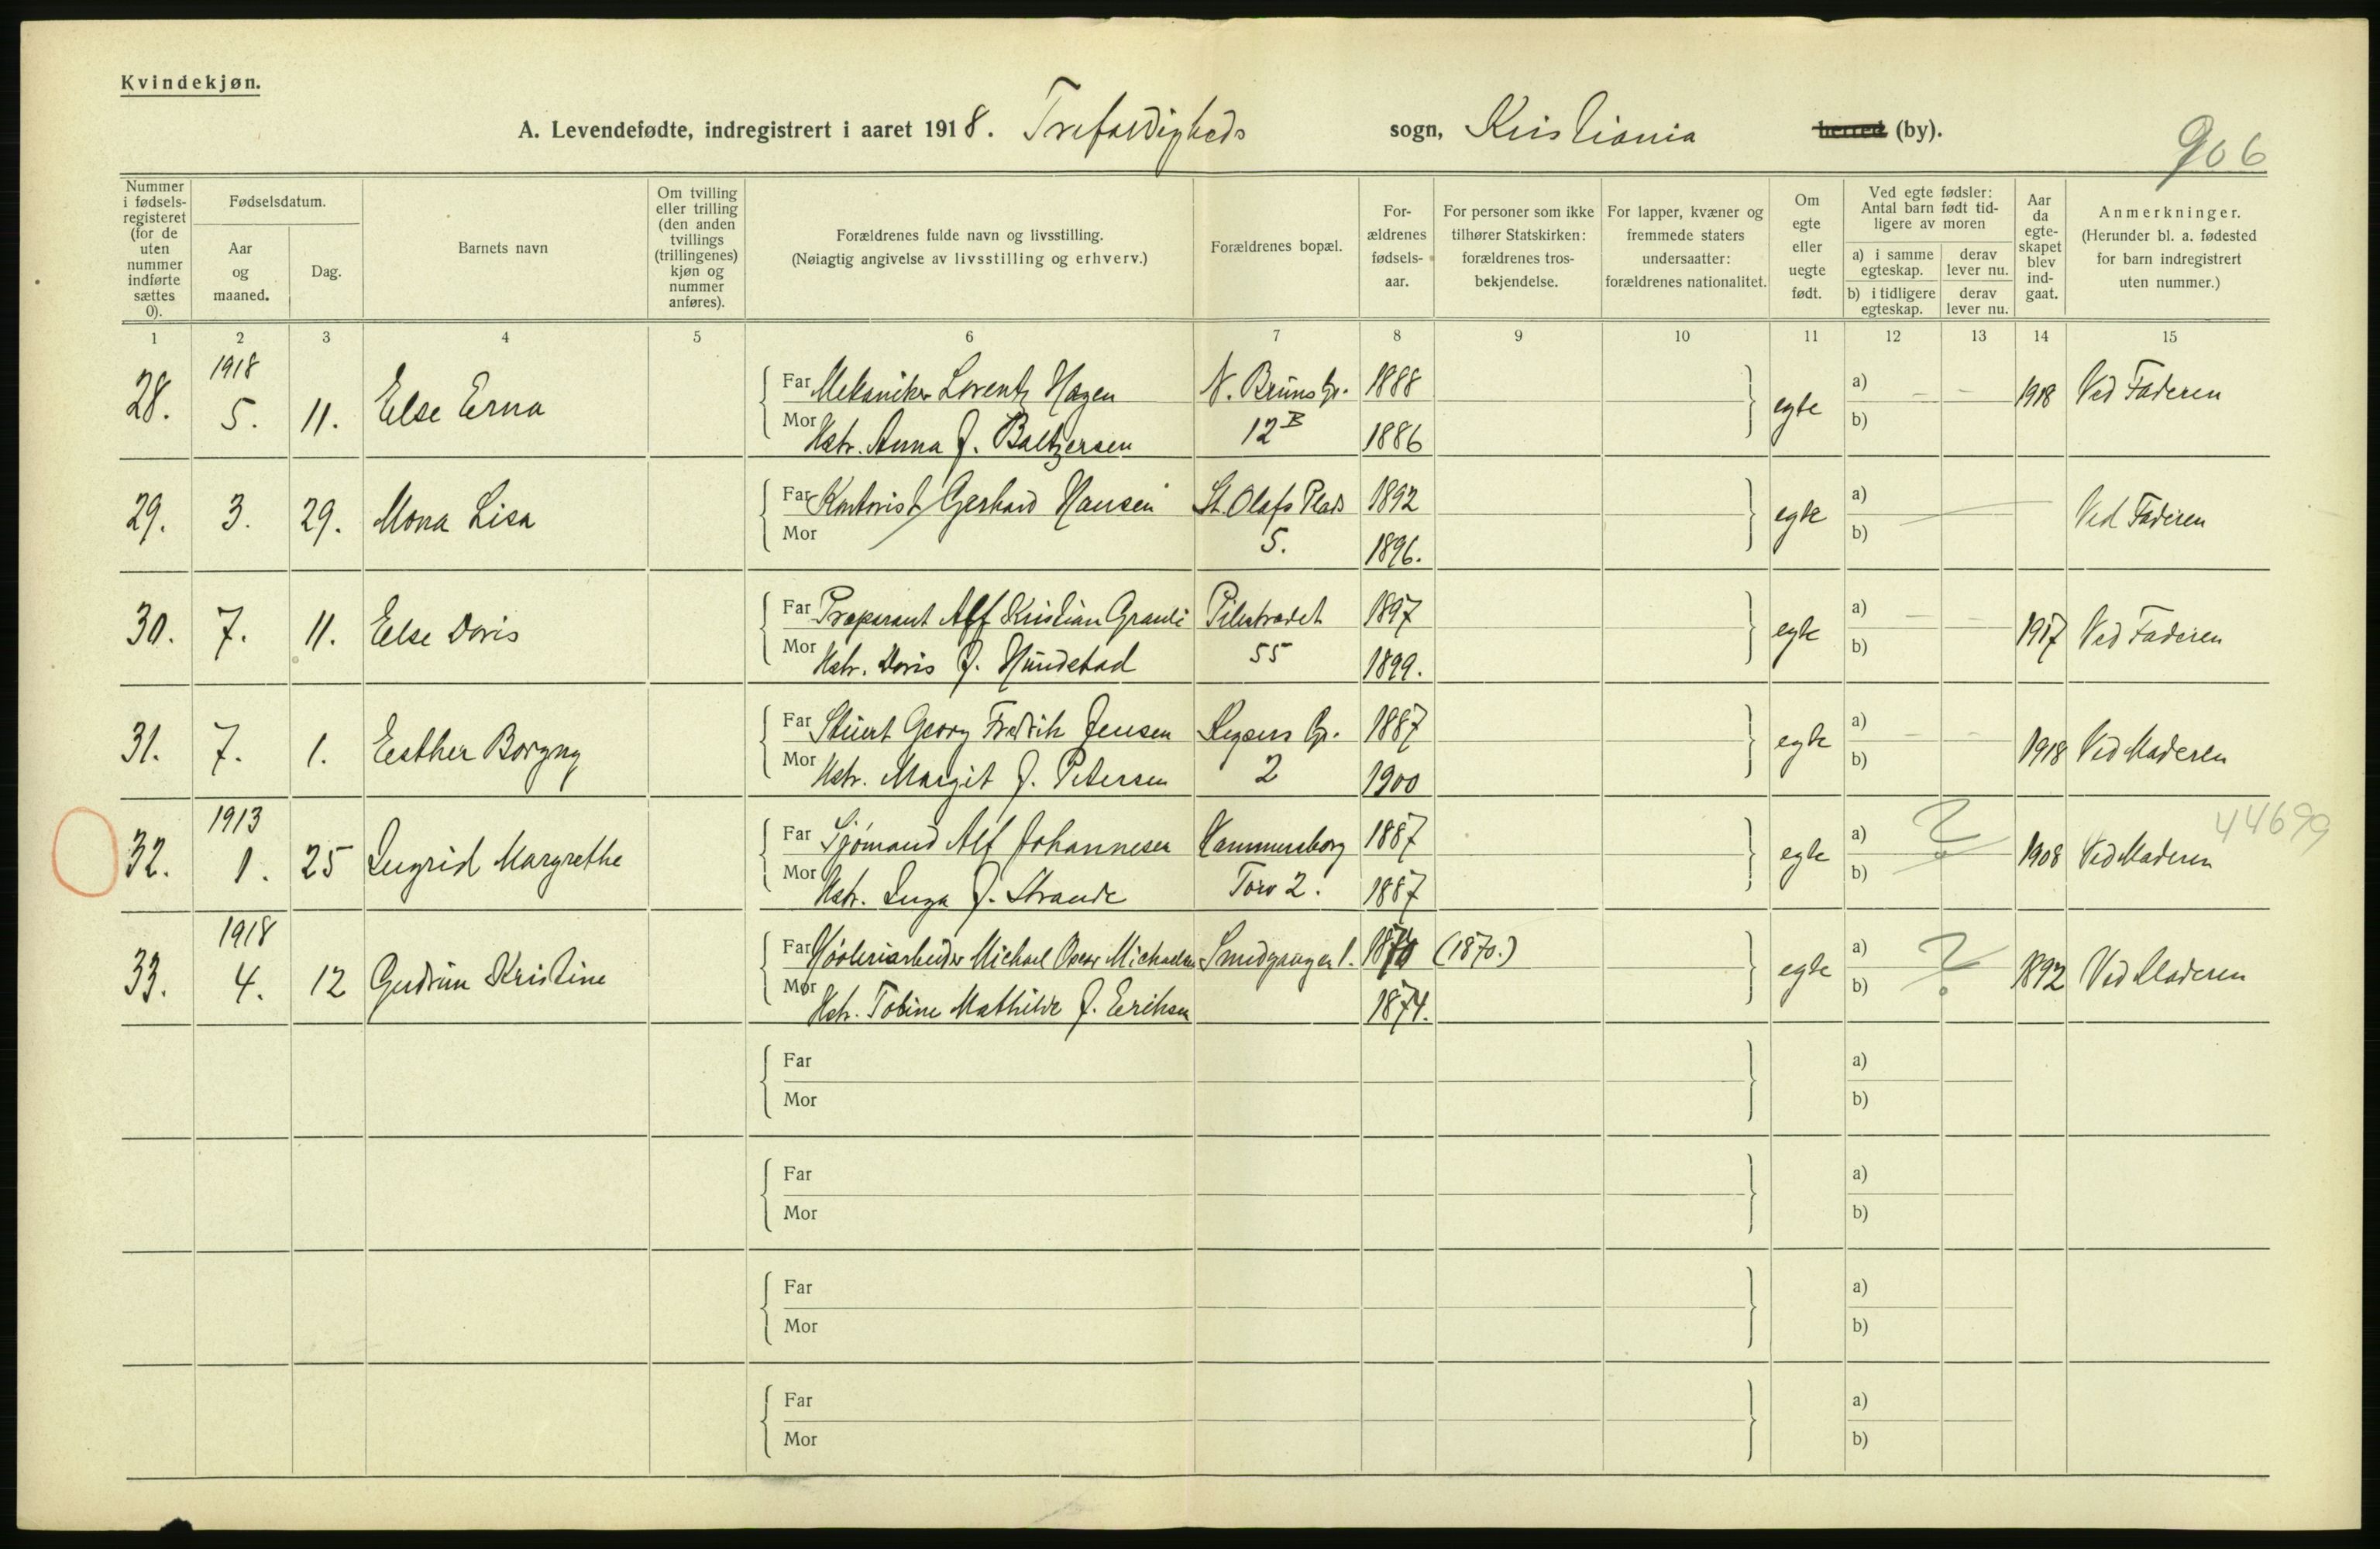 Kvindekjøn.
A. Levendefødte, indregistrert i aaret 1918. Trefoldigheds sogn, Kristiania herred (by).
906
Nummer i fødselsregisteret (for de uten nummer indførte sættes 0).
Fødselsdatum.
Aar og maaned.
Dag.
Barnets navn
Om tvilling eller trilling (den anden tvillings (trillingenes) kjøn og nummer anføres).
Forældrenes fulde navn og livsstilling.
(Nøiagtig angivelse av livsstilling og erhverv.)
Forældrenes bopæl.
Forældrenes fødselsaar.
For personer som ikke tilhører Statskirken: forældrenes trosbekjendelse.
For lapper, kvæner og fremmede staters undersaatter: forældrenes nationalitet.
Om egte eller uegte født.
Ved egte fødsler: Antal barn født tidligere av moren
a) i samme egteskap.
derav lever nu.
b) i tidligere egteskap.
derav lever nu.
Aar da egteskapet blev indgaat.
Anmerkninger.
(Herunder bl. a. fødested for barn indregistrert uten nummer.)
1 2 3 4 5 6 7 8 9 10 11 12 13 14 15
1918
28. 5. 11. Else Erna Far Mekaniker Lorentz Hagen N. Bruns Gr. 1888 egte a) – – 1918 Ved Faderen
Mor Hstr. Anna f. Baltzersen 12B 1886 b)
29. 3. 29. Mona Lisa Far Kontorist Gerhard Hansen St. Olafs Plads 1892 egte a) Ved Faderen
Mor 5. 1896. b)
30. 7. 11. Else Doris Far Præparant Alf Kristian Granli Pilestrædet 1897 egte a) – – 1917 Ved Faderen
Mor Hstr. Doris f. Hundstad 55 1899. b)
31. 7. 1. Esther Borgny Far Stuert Georg Fredrik Jensen Keysers Gr. 1887 egte a) – – 1918 Ved Maderen
Mor Hstr. Margit f. Petersen 2 1900 b)
1913
44699
32. 1. 25 Ingrid Margrethe Far Sjømand Alf Johannesen Hammersborg 1887 egte a) ? 1908 Ved Maderen
Mor Hstr. Inga f. Strande Torv 2. 1887 b)
1918
33. 4. 12 Gudrun Kristine Far Høvleriarbeider Michael Oscar Michaelsen Smedgangen 1. 1870 (1870.) egte a) ? 1892 Ved Maderen
Mor Hstr. Tobine Mathilde f. Eriksen 1874. b)
Far a)
Mor b)
Far a)
Mor b)
Far a)
Mor b)
Far a)
Mor b)